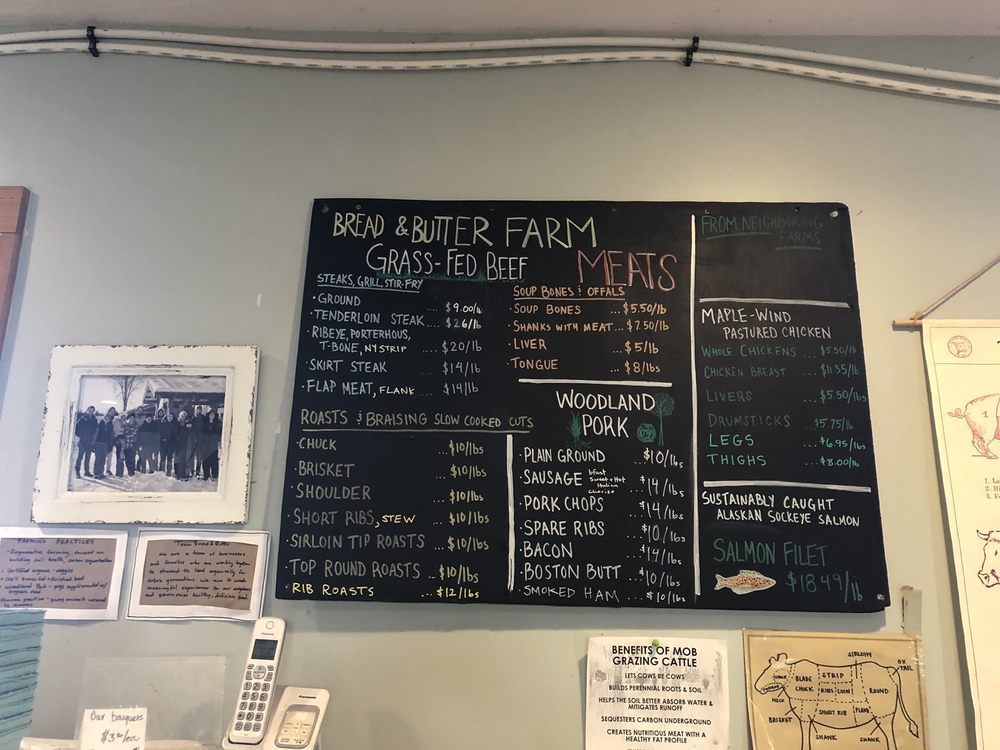 BREAD & BUTTER FARM
GRASS-FED BEEF
MEATS
STEAKS, GRILL, STIR-FRY
·GROUND $9.00/lb
·TENDERLOIN STEAK... $26/lb
·RIBEYE, PORTERHOUS,
T-BONE, NY STRIP .... $20/lb
·SKIRT STEAK ..... $14/lb
·FLAP MEAT, FLANK .... $14/lb
SOUP BONES & OFFALS
·SOUP BONES ... $5.50/lb
·SHANKS WITH MEAT... $7.50/lb
·LIVER ... $5/lb
·TONGUE ... $8/lbs
ROASTS & BRAISING SLOW COOKED CUTS
·CHUCK ... $10/lbs
·BRISKET ... $10/lbs
·SHOULDER $10/lbs
·SHORT RIBS, STEW ... $10/lbs
·SIRLOIN TIP ROASTS ... $10/lbs
·TOP ROUND ROASTS ... $10/lbs
·RIB ROASTS ... $12/lbs
WOODLAND
PORK
·PLAIN GROUND ... $10/lbs
·SAUSAGE ... $14/lbs
Sweet + Hot
Italian
·PORK CHOPS ... $14/lbs
·SPARE RIBS ... $10/lbs
·BACON ... $14/lb
·BOSTON BUTT ... $10/lbs
·SMOKED HAM ... $10/lbs
FROM NEIGHBORING
FARMS
MAPLE-WIND
PASTURED CHICKEN
WHOLE CHICKENS ... $5.50/lb
CHICKEN BREAST ... $11.35/lb
LIVERS ... $5.50/lbs
DRUMSTICKS $5.75/lb
LEGS ... $6.95/lbs
THIGHS ... $8.00/lb
SUSTAINABLY CAUGHT
ALASKAN SOCKEYE SALMON
SALMON FILET
$18.49/lb
FARMING PRACTICES
Team Bread & Butter
We are a team of businesses
Our bouquets
$3.00/ea
Panasonic
Panasonic
BENEFITS OF MOB
GRAZING CATTLE
LETS COWS BE COWS
BUILDS PERENNIAL ROOTS & SOIL
HELPS THE SOIL BETTER ABSORB WATER &
MITIGATES RUNOFF
SEQUESTERS CARBON UNDERGROUND
CREATES NUTRITIOUS MEAT WITH A
HEALTHY FAT PROFILE
SIRLOIN
OX TAIL
STRIP
BLADE
CHUCK
RIBS
LOIN
ROUND
NECK
SHORT RIB
FLANK
BRISKET
SHANK
SHANK
1